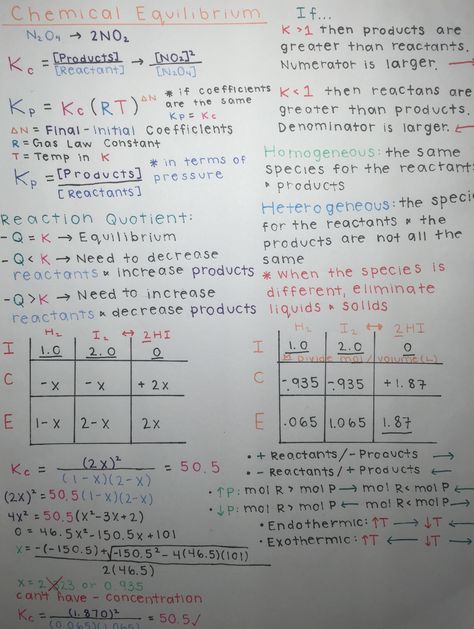 Chemical Equilibrium
N₂O₄ → 2NO₂
Kc = [Products]/[Reactant] → [NO₂]²/[N₂O₄]
Kp = Kc(RT)^ΔN * if coefficients
are the same
Kp = Kc
ΔN = Final-Initial Coefficients
R = Gas Law Constant
T = Temp in K
Kp = [Products]/[Reactants] * in terms of
pressure
Reaction Quotient:
-Q = K → Equilibrium
-Q < K → Need to decrease
reactants & increase products
-Q > K → Need to increase
reactants & decrease products
H₂ I₂ ↔ 2HI
I 1.0 2.0 0
C -x -x +2x
E 1-x 2-x 2x
Kc = (2x)²/(1-x)(2-x) = 50.5
(2x)² = 50.5(1-x)(2-x)
4x² = 50.5(x²-3x+2)
0 = 46.5x²-150.5x+101
x = -(-150.5)±√-150.5²-4(46.5)(101)
2(46.5)
or 0.935
can't have - concentration
Kc = (1.870)²/(0.065)(1.065) = 50.5✓
If...
K > 1 then products are
greater than reactants.
Numerator is larger. →
K < 1 then reactans are
greater than products.
Denominator is larger. ←
Homogeneous: the same
species for the reactant
& products
Heterogeneous: the speci
for the reactants & the
products are not all the
same
* When the species is
different, eliminate
liquids & solids
H₂ I₂ ↔ 2HI
I 1.0 2.0 0
* Divide mol/volume(L)
C -.935 -.935 +1.87
E .065 1.065 1.87
• + Reactants/- Products →
• - Reactants/+ Products ←
• ↑P: mol R > mol P → mol R < mol P ←
• ↓P: mol R > mol P ← mol R < mol P →
• Endothermic: ↑T → ↓T ←
• Exothermic: ↑T ← ↓T →